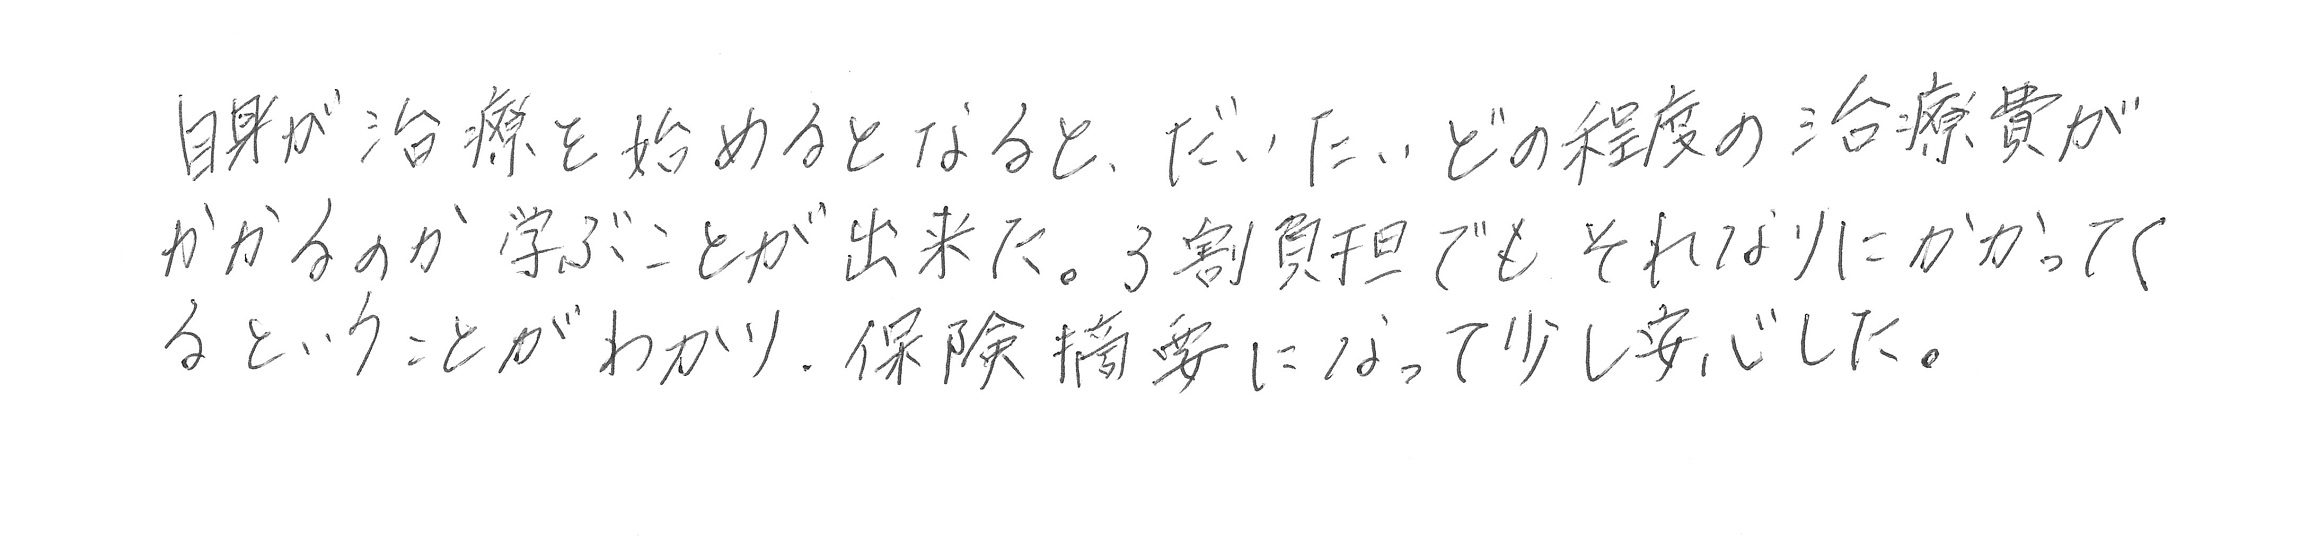 自身が治療を始めるとなると、だいたいどの程度の治療費が
かかるのか学ぶことが出来た。3割負担でもそれなりにかかってく
るということがわかり、保険摘要になって少し安心した。